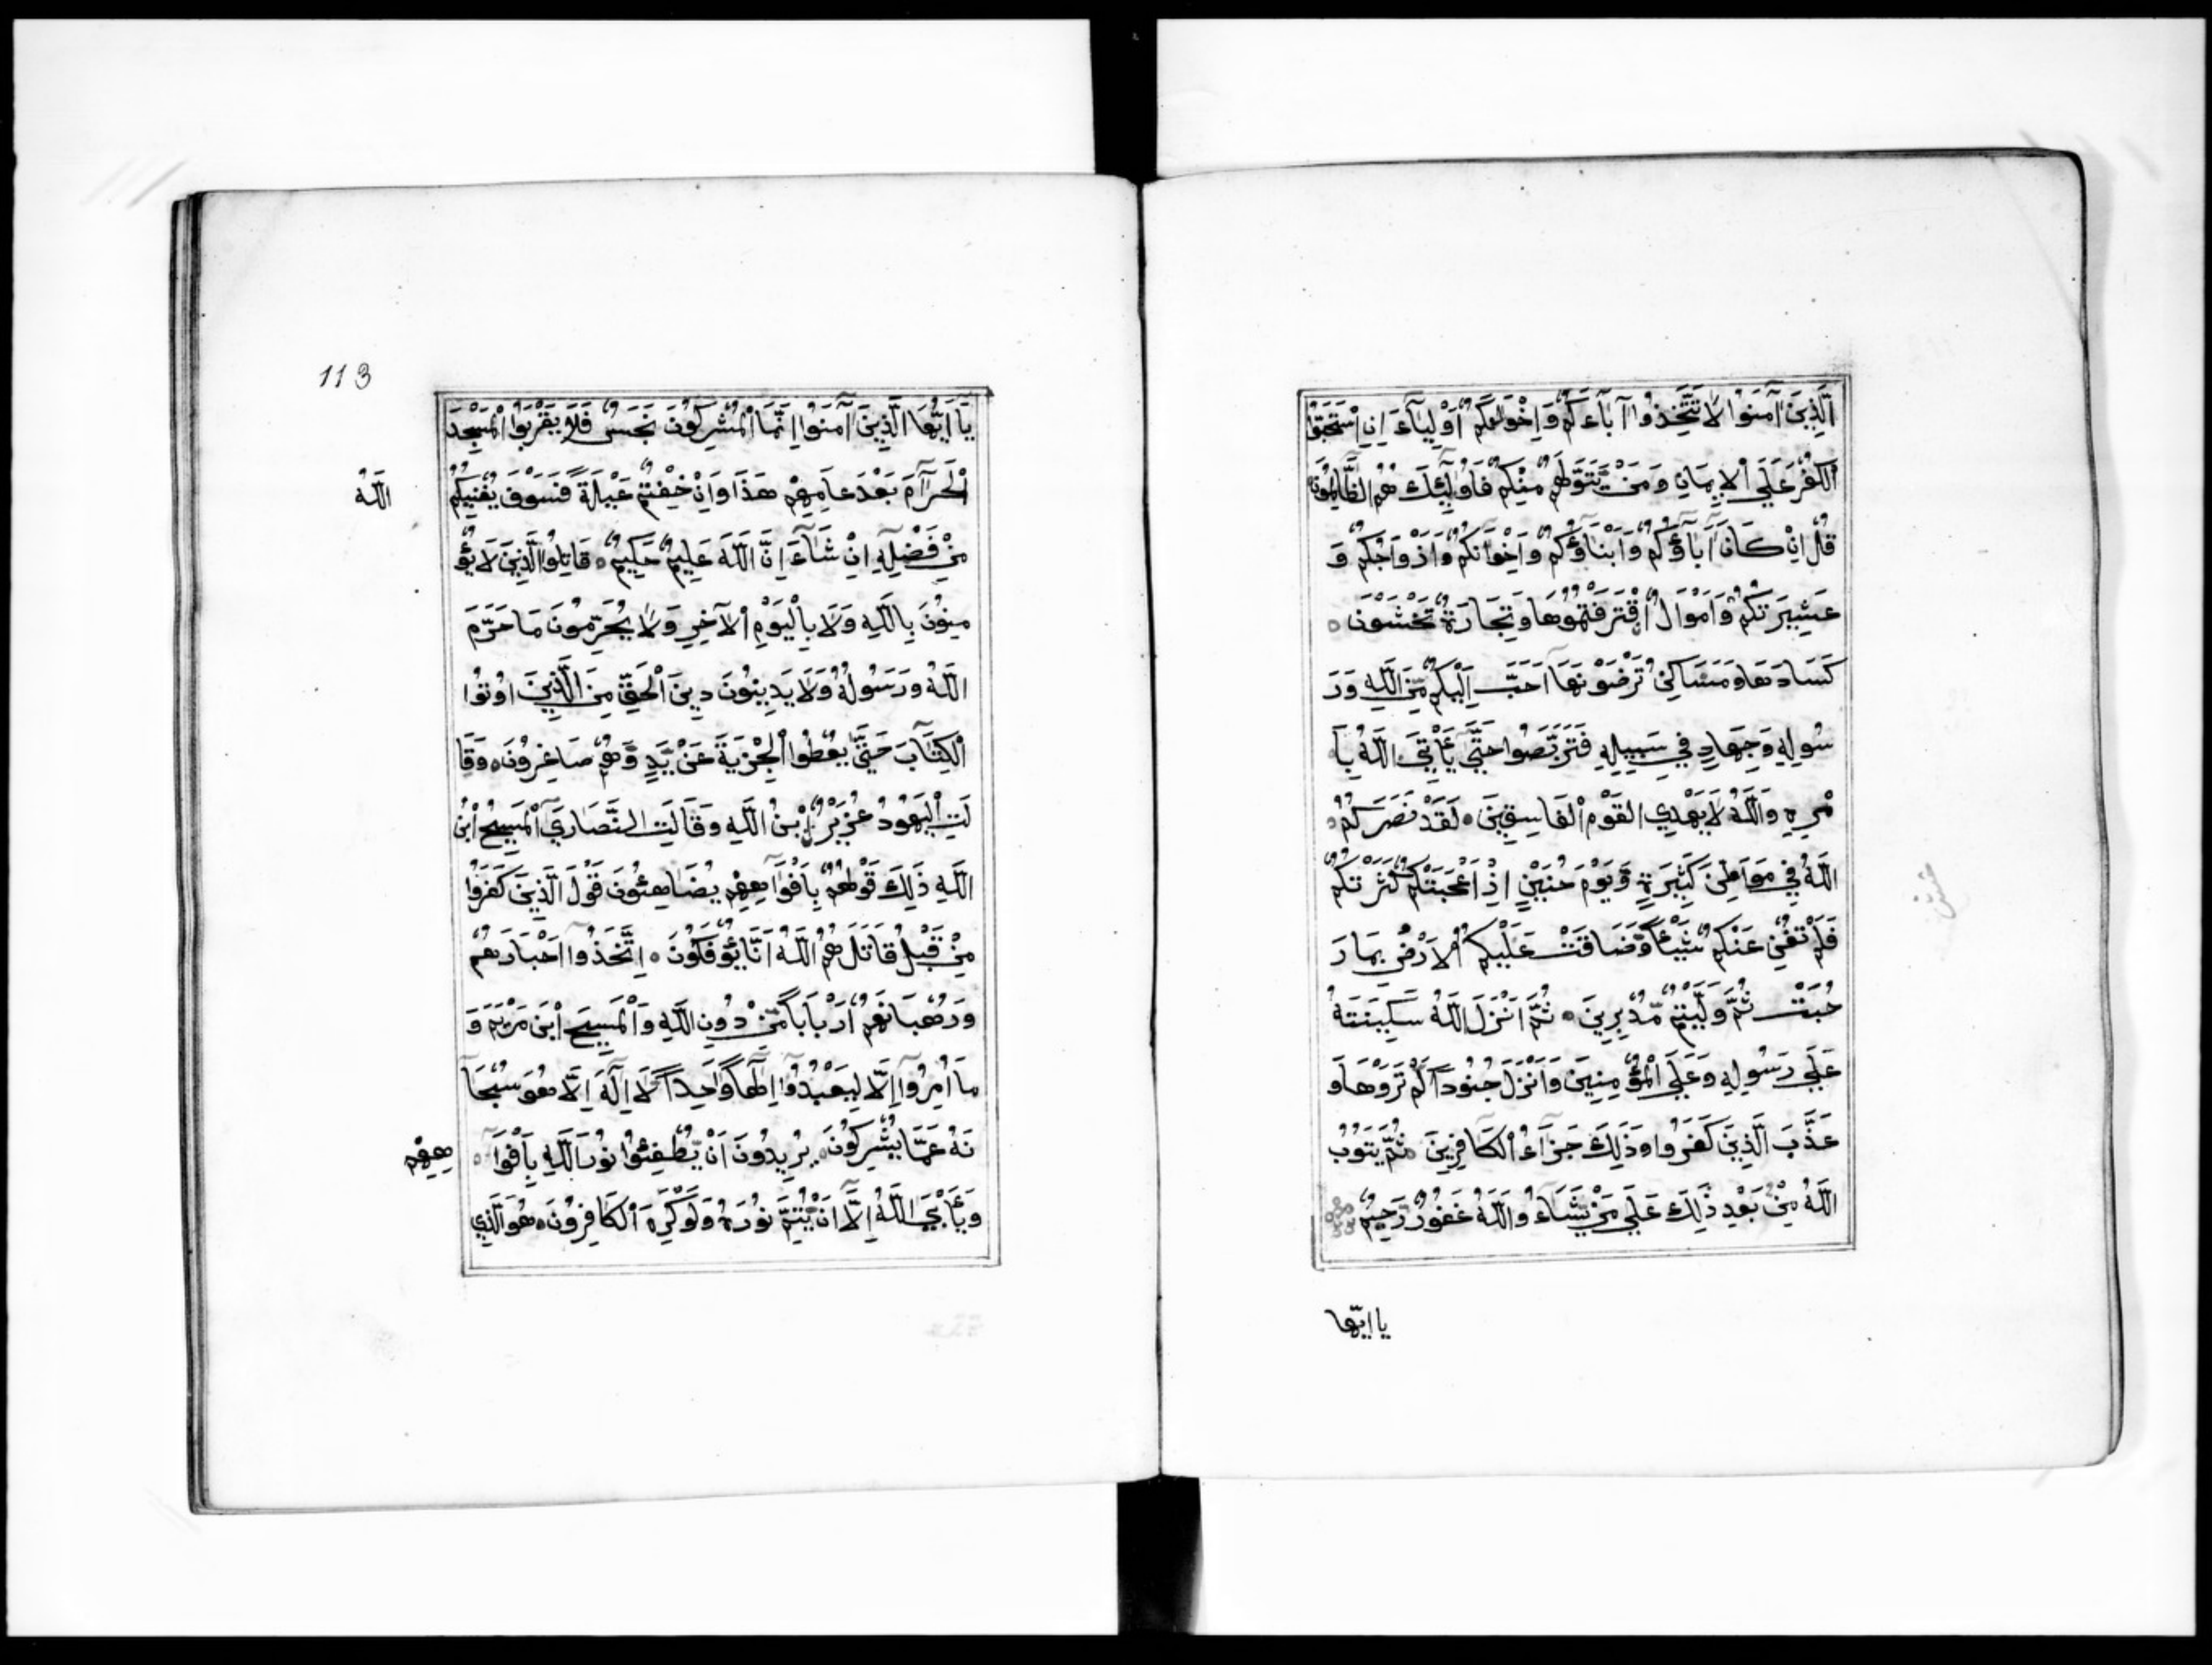 الَّذِينَ آمَنُوا لَا تَتَّخِذُوا آبَآءَكُمْ وَإِخْوَانَكُمْ أَوْلِيَآءَ إِنِ اسْتَحَبُّوا
الْكُفْرَ عَلَى الْإِيمَانِ وَمَنْ يَتَوَلَّهُمْ مِنْكُمْ فَأُولَٰئِكَ هُمُ الظَّالِمُونَ
قُلْ إِنْ كَانَ آبَاؤُكُمْ وَأَبْنَاؤُكُمْ وَإِخْوَانُكُمْ وَأَزْوَاجُكُمْ وَ
عَشِيرَتُكُمْ وَأَمْوَالٌ اقْتَرَفْتُمُوهَا وَتِجَارَةٌ تَخْشَوْنَ
كَسَادَهَا وَمَسَاكِنُ تَرْضَوْنَهَا أَحَبَّ إِلَيْكُمْ مِنَ اللَّهِ وَرَ
سُولِهِ وَجِهَادٍ فِي سَبِيلِهِ فَتَرَبَّصُوا حَتَّى يَأْتِيَ اللَّهُ بِأَ
مْرِهِ وَاللَّهُ لَا يَهْدِي الْقَوْمَ الْفَاسِقِينَ لَقَدْ نَصَرَكُمُ
اللَّهُ فِي مَوَاطِنَ كَثِيرَةٍ وَيَوْمَ حُنَيْنٍ إِذْ أَعْجَبَتْكُمْ كَثْرَتُكُمْ
فَلَمْ تُغْنِ عَنْكُمْ شَيْئًا وَضَاقَتْ عَلَيْكُمُ الْأَرْضُ بِمَا رَ
حُبَتْ ثُمَّ وَلَّيْتُمْ مُدْبِرِينَ ثُمَّ أَنْزَلَ اللَّهُ سَكِينَتَهُ
عَلَى رَسُولِهِ وَعَلَى الْمُؤْمِنِينَ وَأَنْزَلَ جُنُودًا لَمْ تَرَوْهَا وَ
عَذَّبَ الَّذِينَ كَفَرُوا وَذَلِكَ جَزَآءُ الْكَافِرِينَ ثُمَّ يَتُوبُ
اللَّهُ مِنْ بَعْدِ ذَلِكَ عَلَى مَنْ يَشَاءُ وَاللَّهُ غَفُورٌ رَحِيمٌ
يا ايّها
113
يَا أَيُّهَا الَّذِينَ آمَنُوا إِنَّمَا الْمُشْرِكُونَ نَجَسٌ فَلَا يَقْرَبُوا الْمَسْجِدَ
الْحَرَامَ بَعْدَ عَامِهِمْ هَذَا وَإِنْ خِفْتُمْ عَيْلَةً فَسَوْفَ يُغْنِيكُمُ
اللّهُ
مِنْ فَضْلِهِ إِنْ شَآءَ إِنَّ اللَّهَ عَلِيمٌ حَكِيمٌ قَاتِلُوا الَّذِينَ لَا يُؤْ
مِنُونَ بِاللَّهِ وَلَا بِالْيَوْمِ الْآخِرِ وَلَا يُحَرِّمُونَ مَا حَرَّمَ
اللَّهُ وَرَسُولُهُ وَلَا يَدِينُونَ دِينَ الْحَقِّ مِنَ الَّذِينَ أُوتُوا
الْكِتَابَ حَتَّى يُعْطُوا الْجِزْيَةَ عَنْ يَدٍ وَهُمْ صَاغِرُونَ وَقَا
لَتِ الْيَهُودُ عُزَيْرٌ ابْنُ اللَّهِ وَقَالَتِ النَّصَارَى الْمَسِيحُ ابْنُ
اللَّهِ ذَلِكَ قَوْلُهُمْ بِأَفْوَاهِهِمْ يُضَاهِئُونَ قَوْلَ الَّذِينَ كَفَرُوا
مِنْ قَبْلُ قَاتَلَهُمُ اللَّهُ أَنَّا يُؤْفَكُونَ اِتَّخَذُوا أَحْبَارَهُمْ
وَرُهْبَانَهُمْ أَرْبَابًا مِنْ دُونِ اللَّهِ وَالْمَسِيحَ ابْنَ مَرْيَمَ وَ
مَا أُمِرُوا إِلَّا لِيَعْبُدُوا إِلَٰهًا وَاحِدًا لَا إِلَٰهَ إِلَّا هُوَ سُبْحَا
نَهُ عَمَّا يُشْرِكُونَ يُرِيدُونَ أَنْ يُطْفِئُوا نُورَ اللَّهِ بِأَفْوَا
هِهِمْ
وَيَأْبَى اللَّهُ إِلَّا أَنْ يُتِمَّ نُورَهُ وَلَوْ كَرِهَ الْكَافِرُونَ هُوَ الَّذِي